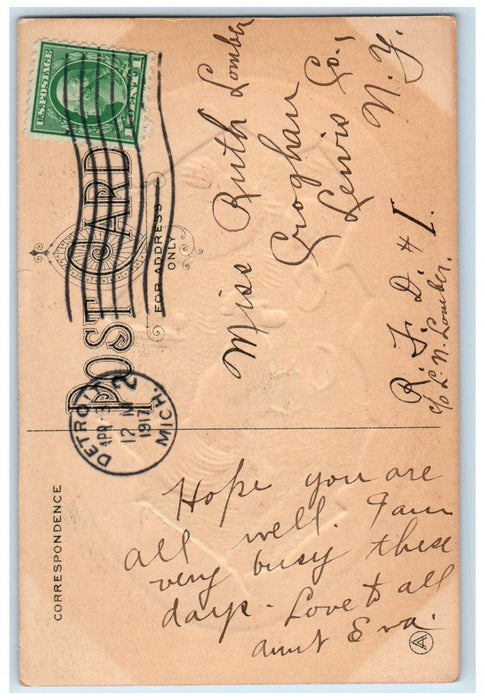 U.S. POSTAGE
1 CENT 1
POST CARD
FOR ADDRESS
ONLY
DETROIT
APR
12 M
1917
MICH.
2
Miss Ruth Lomber
Croghan
Lewis Co.,
N. Y.
R. F. D. # 1.
c/o L. N. Lomber.
CORRESPONDENCE
Hope you are
all well. I am
very busy these
days. Love to all
aunt Eva.
A